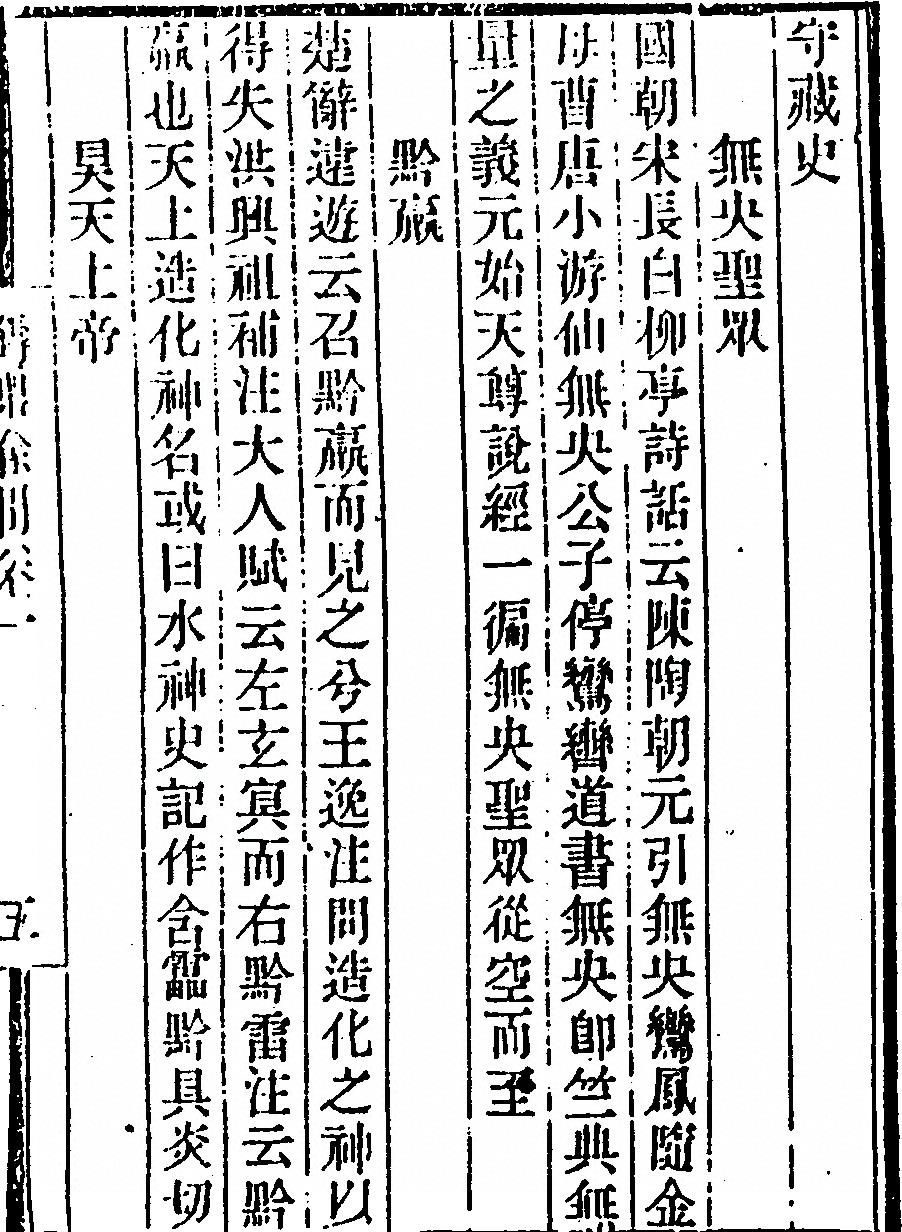 守藏史
無央聖眾
國朝宋長白柳亭詩話云陳陶朝元引無央鸞鳳隨金
母曹唐小游仙無央公子停鸞轡道書無央卽竺典無
量之義元始天尊說經一徧無央聖眾從空而至
黔羸
楚辭遠遊云召黔羸而見之兮王逸注問造化之神以
得失洪興祖補注大人賦云左玄冥而右黔雷注云黔
羸也天上造化神名或曰水神史記作含靁黔具炎切
昊天上帝
五